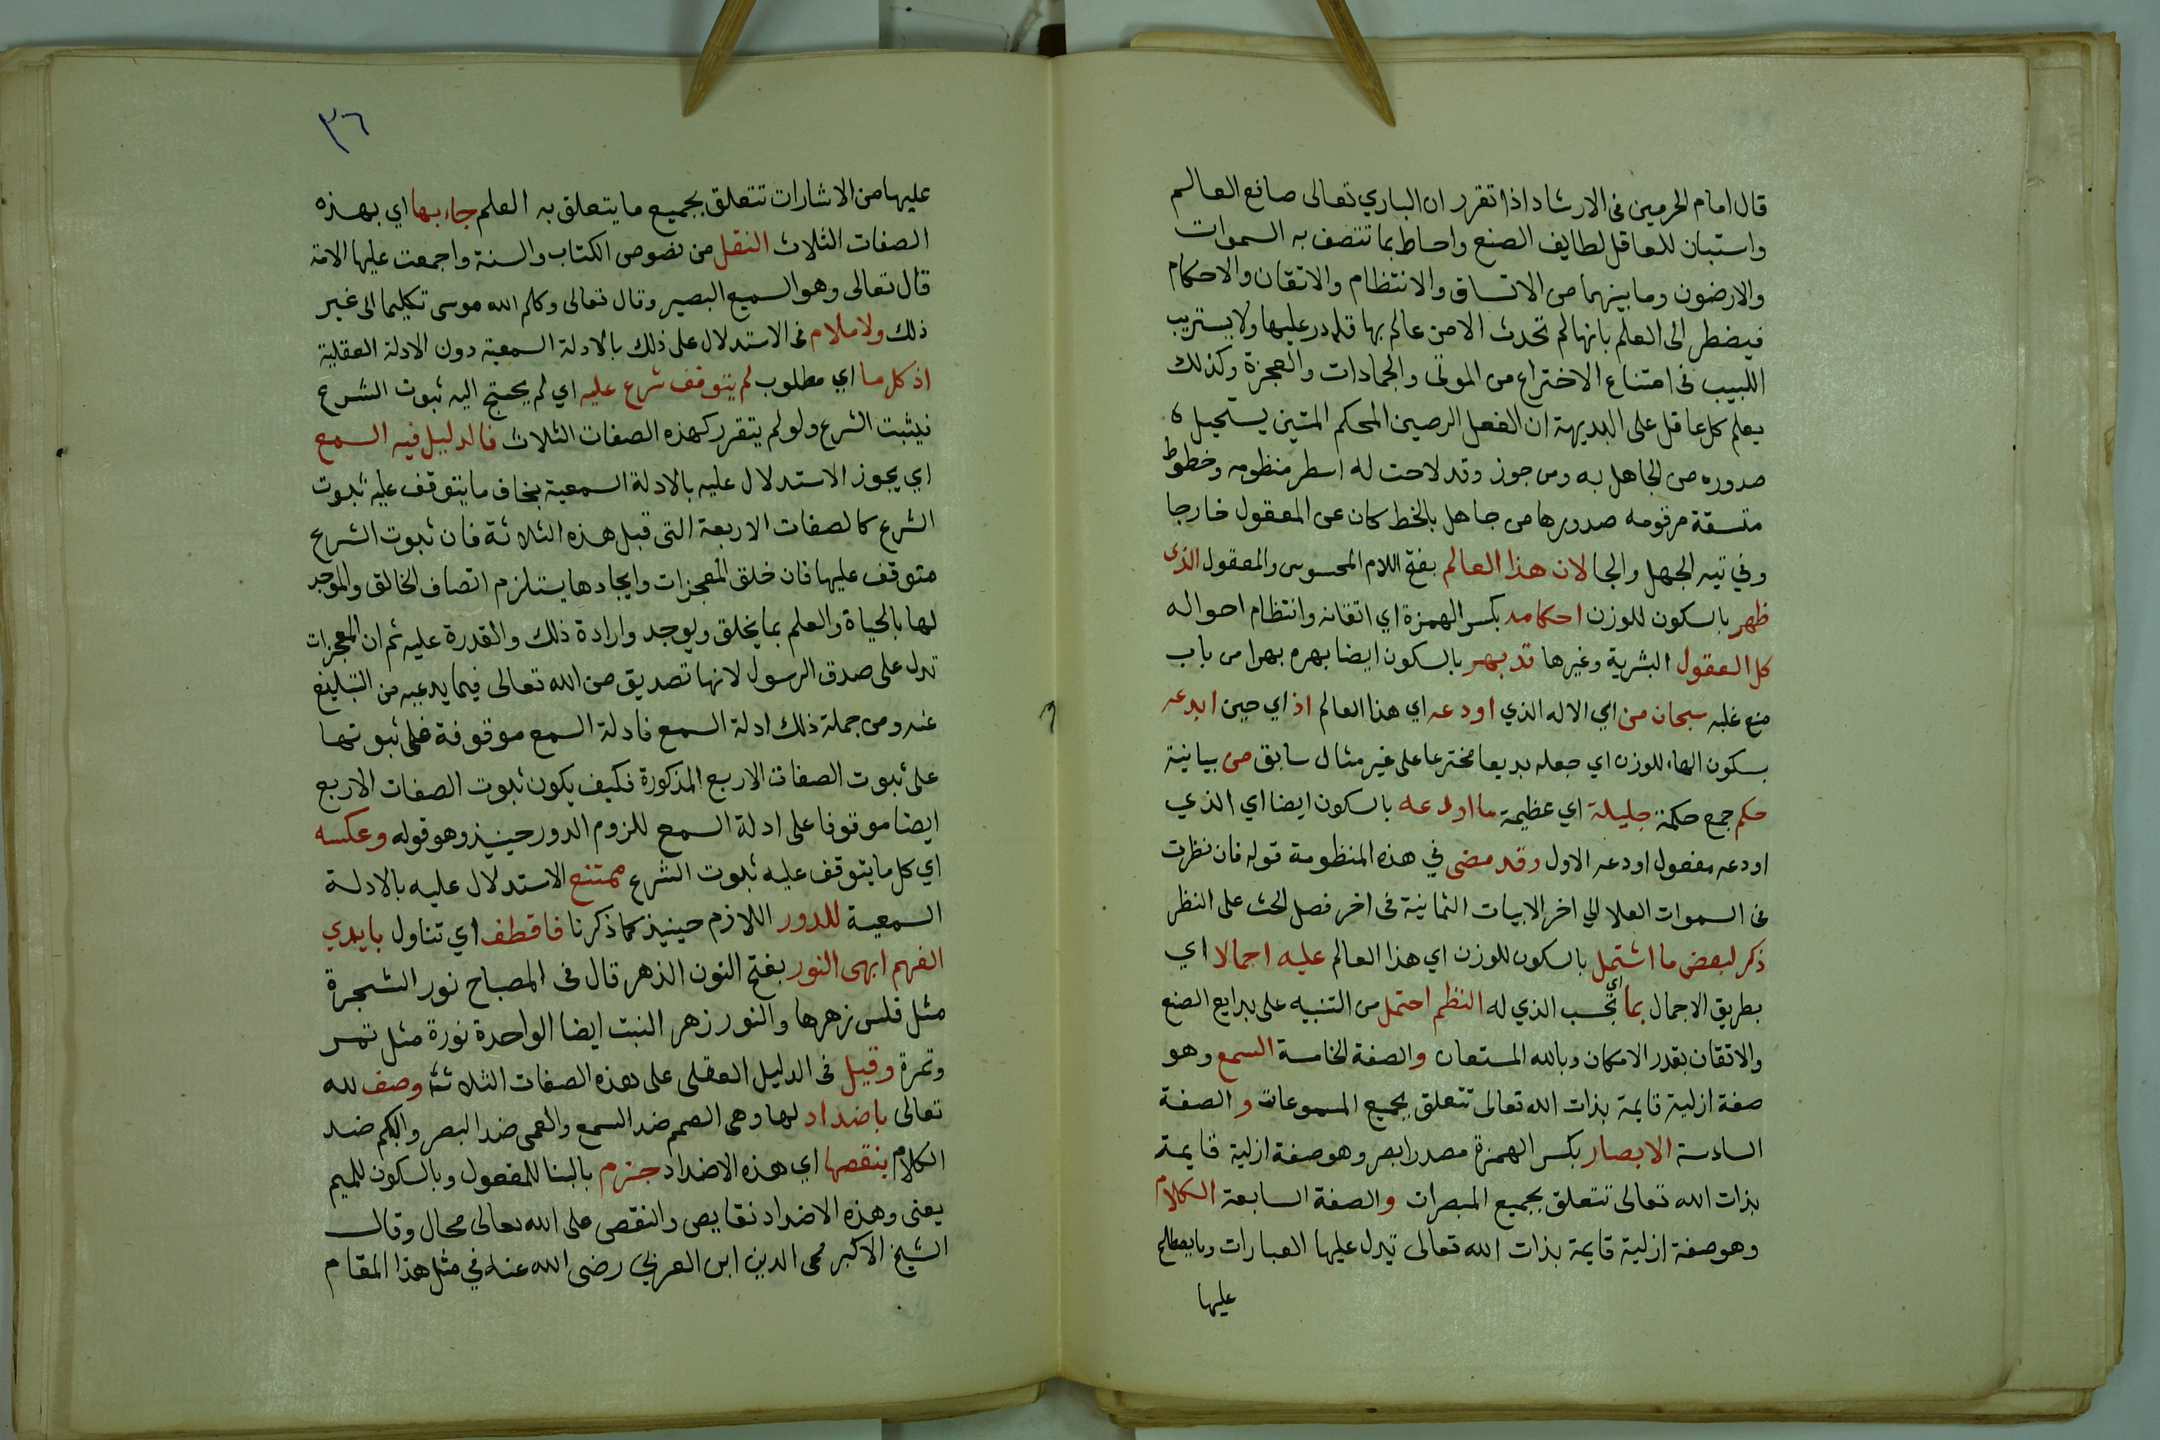 قال امام الحرمين فى الارشاد اذا تقرر ان الباري تعالى صانع العالم
واستبان للعاقل لطايف الصنع واحاط بما تتصف به السموات
والارضون وما بينهما من الاتساق والانتظام والاتقان والاحكام
فيضطر الى العلم بانها لم تحدث الا من عالم بها قادر عليها ولا يستريب
اللبيب فى امتناع الاختراع من الموتى والجمادات والعجزة وكذلك
يعلم كل عاقل على البديهة ان الفعل الرصين المحكم المتين يستحيل
صدوره من الجاهل به ومن جوز وقد لاحت له اسطر منظومه وخطوط
متسقة مرقومه صدورها من جاهل بالخط كان عن المعقول خارجا
وفي تيه الجهل والجا لان هذا العالم بفتح اللام المحسوس والمعقول الذى
ظهر بالسكون للوزن احكامه بكسر الهمزة اي اتقانه وانتظام احواله
كل العقول البشرية وغيرها قد بهر بالسكون ايضا بهره بهرا من باب
منع غلبه سبحان من اي الاله الذي اودعه اي هذا العالم اذ اي حين ابدعه
بسكون الهاء للوزن اي جعله بديعا مخترعا على غير مثال سابق من بيانية
حكم جمع حكمة جليلة اي عظيمة ما اودعه بالسكون ايضا اي الذي
اودعه مفعول اودعه الاول وقد مضى في هذه المنظومة قوله فان نظرت
فى السموات العلا الي اخر الابيات الثمانية فى اخر فصل الحث على النظر
ذكر لبعض ما اشتمل بالسكون للوزن اي هذا العالم عليه اجمالا اي
بطريق الاجمال بما اي بحسب الذي له النظم احتمل من التنبيه على بدايع الصنع
والاتقان بقدر الامكان وبالله المستعان والصفة الخامسة السمع وهو
صفة ازلية قايمة بذات الله تعالى تتعلق بجميع المسموعات والصفة
السادسة الابصار بكسر الهمزة مصدر ابصر وهو صفة ازلية قايمة
بذات الله تعالى تتعلق بجميع المبصرات والصفة السابعة الكلام
وهو صفة ازلية قايمة بذات الله تعالى تدل عليها العبارات وما يصطلح
عليها
٣٦
عليها من الاشارات تتعلق بجميع ما يتعلق به العلم جاء بها اي بهذه
الصفات الثلاث النقل من نصوص الكتاب والسنة واجمعت عليها الامة
قال تعالى وهو السميع البصير وقال تعالى وكلم الله موسى تكليما الى غير
ذلك ولا ملام فى الاستدلال على ذلك بالادلة السمعية دون الادلة العقلية
اذ كل ما اي مطلوب لم يتوقف شرع عليه اي لم يحتج اليه ثبوت الشرع
فيثبت الشرع ولو لم يتقرر كهذه الصفات الثلاث فالدليل فيه السمع
اي يجوز الاستدلال عليه بالادلة السمعية بخاف ما يتوقف عليه ثبوت
الشرع كالصفات الاربعة التى قبل هذه الثلاثة فان ثبوت الشرع
متوقف عليها فان خلق المعجزات وايجادها يستلزم اتصاف الخالق والموجد
لها بالحياة والعلم بما يخلق ويوجد وارادة ذلك والقدرة عليه ثم ان المعجزات
تدل على صدق الرسول لانها تصديق من الله تعالى فيما يدعيه من التبليغ
عنه ومن جملة ذلك ادلة السمع فادلة السمع موقوفة على ثبوتها
على ثبوت الصفات الاربع المذكورة فكيف يكون ثبوت الصفات الاربع
ايضا موقوفا على ادلة السمع للزوم الدور حينيذ وهو قوله وعكسه
اي كل ما يتوقف عليه ثبوت الشرع ممتنع الاستدلال عليه بالادلة
السمعية للدور اللازم حينيذ كما ذكرنا فاقطف اي تناول بايدي
الفهم ابهى النور بفتح النون الذهر قال فى المصباح نور الشجرة
مثل فلس زهرها والنور زهر النبت ايضا الواحدة نورة مثل تمر
وتمرة وقيل فى الدليل العقلى على هذه الصفات الثلاثة وصف لله
تعالى باضداد لها وهى الصمم ضد السمع والعمى ضد البصر والبكم ضد
الكلام بنقصها اي هذه الاضداد جزم بالبنا للمفعول وبالسكون للميم
يعنى وهذه الاضداد نقايص والنقص على الله تعالى محال وقال
الشيخ الاكبر محى الدين ابن العربي رضى الله عنه في مثل هذا المقام